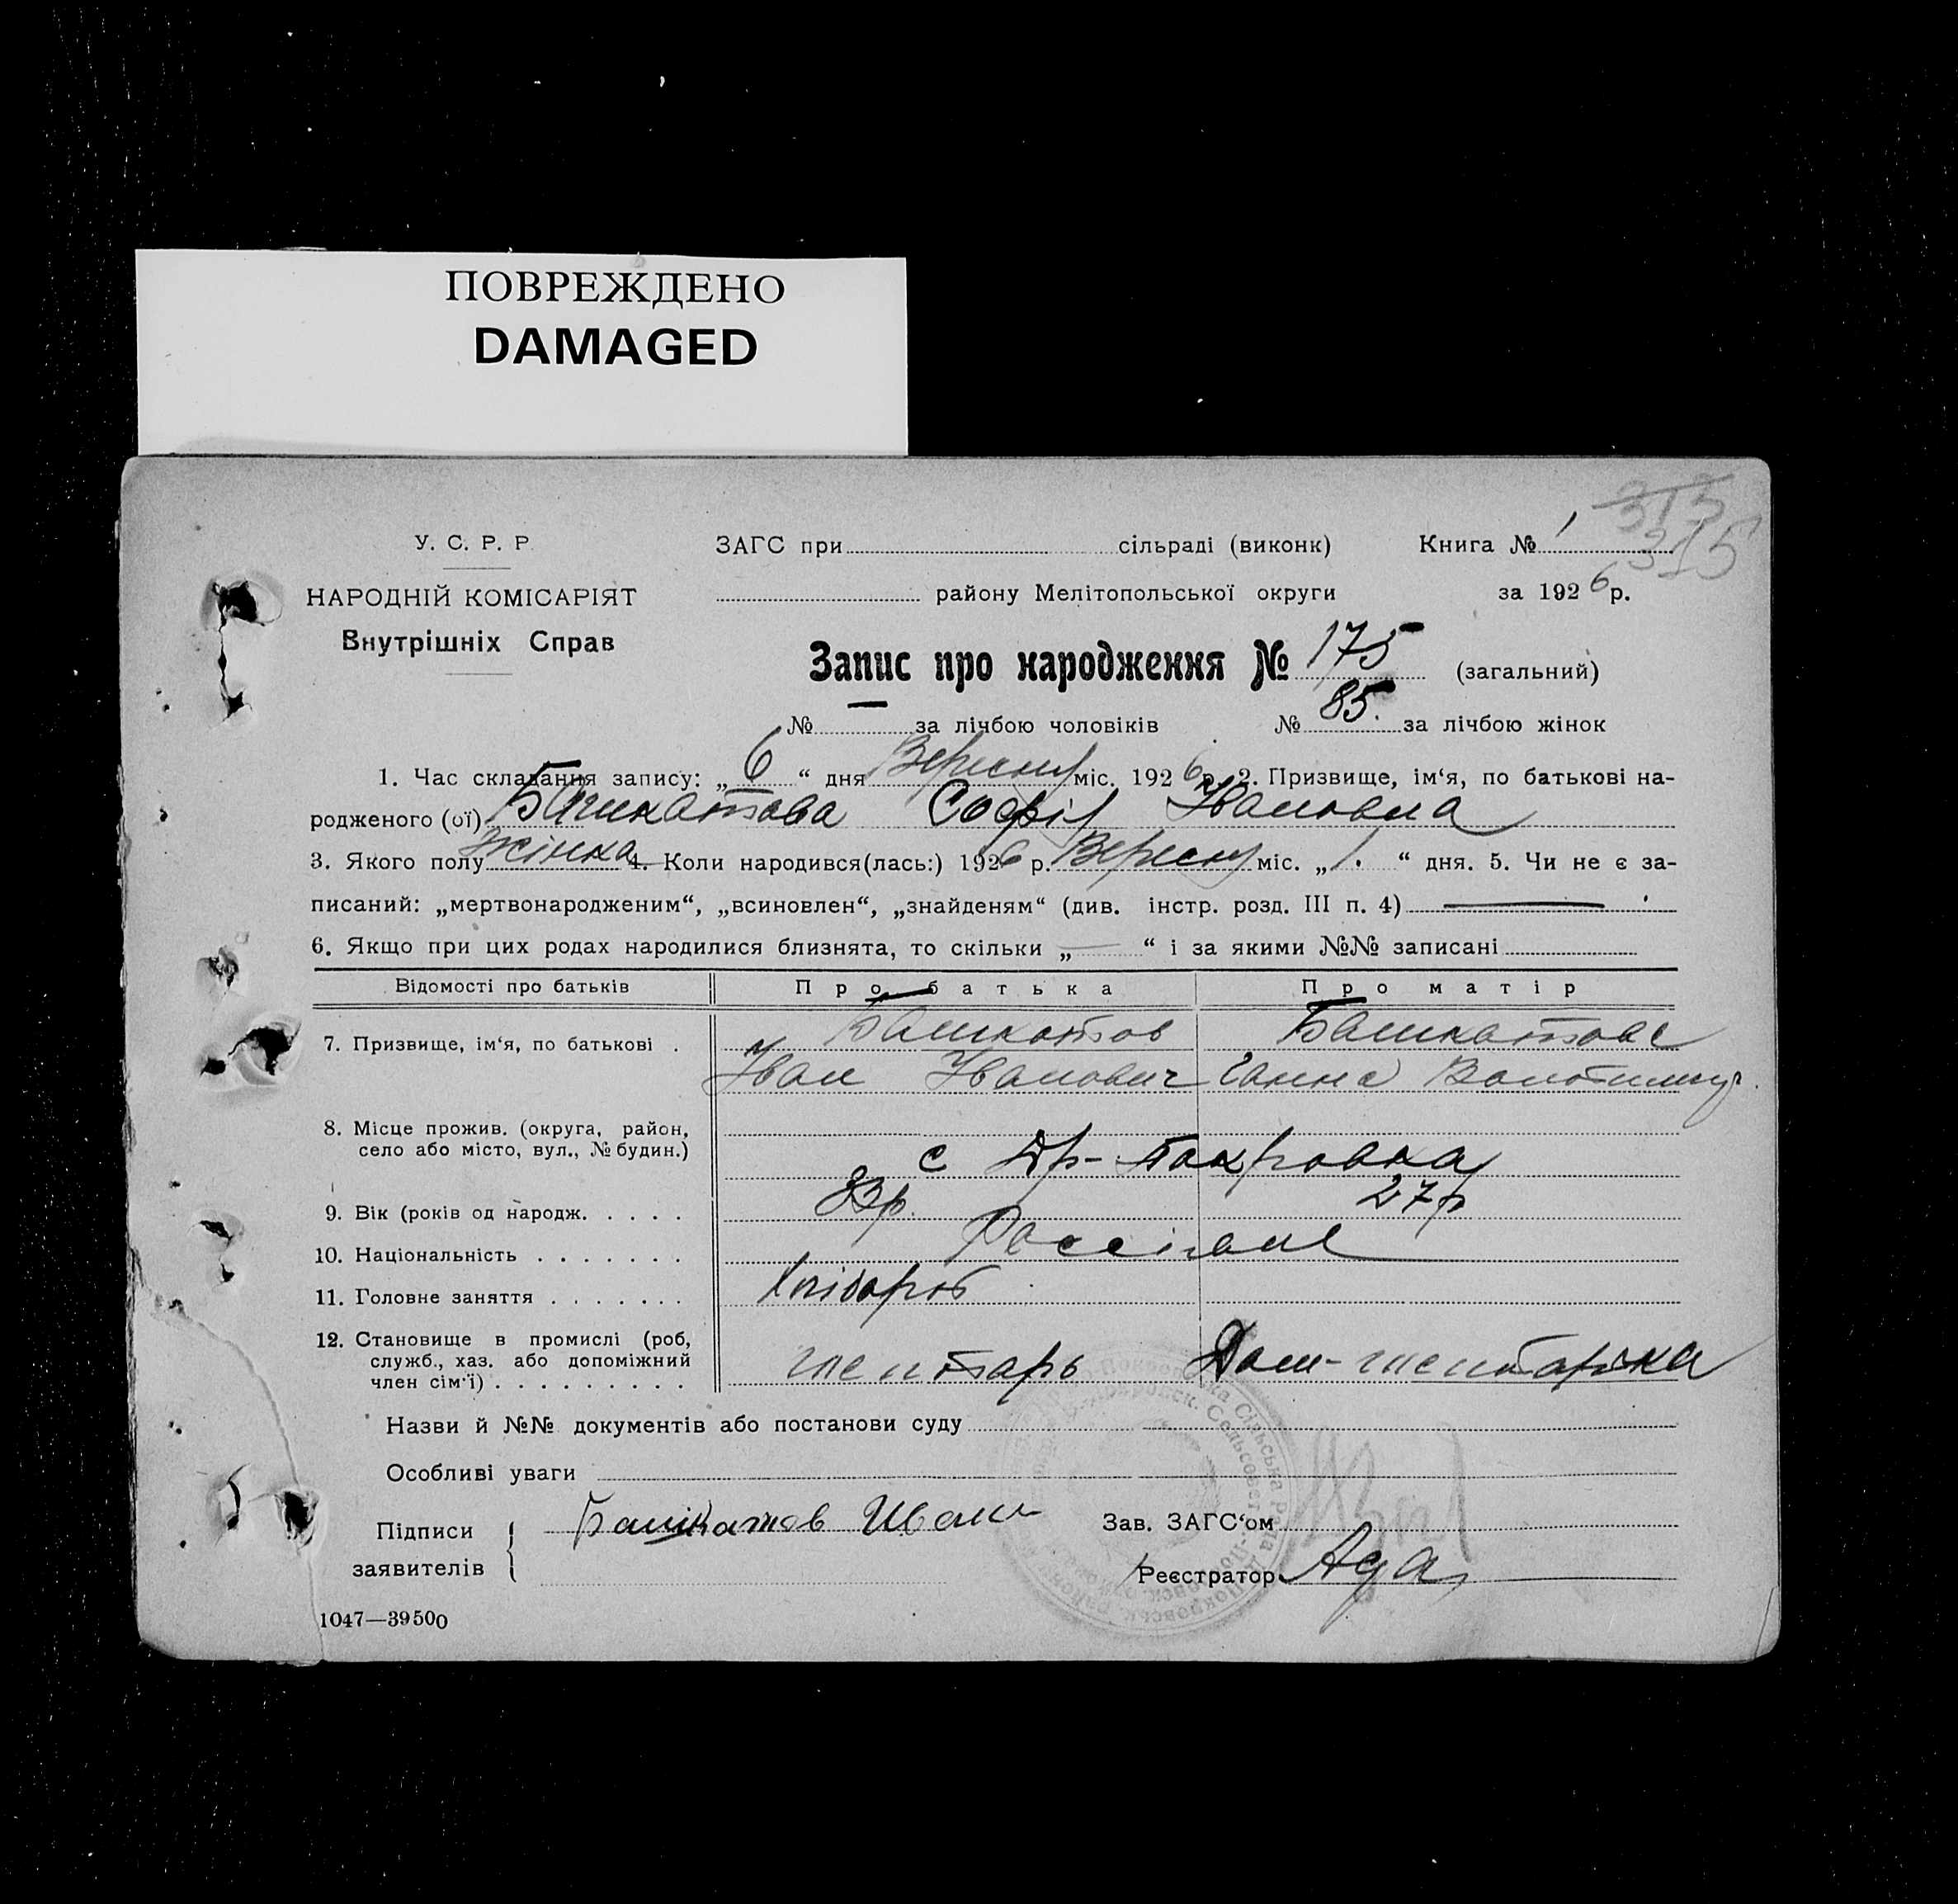 ПОВРЕЖДЕНО
DAMAGED
313
315
У. С. Р. Р. ЗАГС при сільраді (виконк) Книга № 1
НАРОДНІЙ КОМІСАРІЯТ району Мелітопольської округи за 1926 р.
Внутрішніх Справ
Запис про народження № 175 (загальний)
№ — за лічбою чоловіків № 85. за лічбою жінок
1. Час складання запису: „6“ дня Вересня міс. 1926 р. 2. Призвище, ім‘я, по батькові на-
родженого (ої) Башкатова Софія Івановна
3. Якого полу жінка 4. Коли народився(лась:) 1926 р. Вересня міс. „1“ дня. 5. Чи не є за-
писаний: „мертвонародженим“, „всиновлен“, „знайденям“ (див. інстр. розд. III п. 4) —
6. Якщо при цих родах народилися близнята, то скільки „—“ і за якими №№ записані
Відомості про батьків Про батька Про матір
7. Призвище, ім‘я, по батькові . Башкатов Башкатова
Іван Іванович Ганна
8. Місце прожив. (округа, район,
село або місто, вул., № будин.) с Др-Покровка
9. Вік (років од народж. . . . . 33р. 27р
10. Національність . . . . . . . Россіяне
11. Головне заняття . . . . . . . Хлібороб
12. Становище в промислі (роб,
служб., хаз. або допоміжний
член сім‘ї) . . . . . . . . .
Назви й №№ документів або постанови суду
Особливі уваги
Підписи Башкатов Иван Зав. ЗАГС‘ом
заявителів Реєстратор
1047—39500